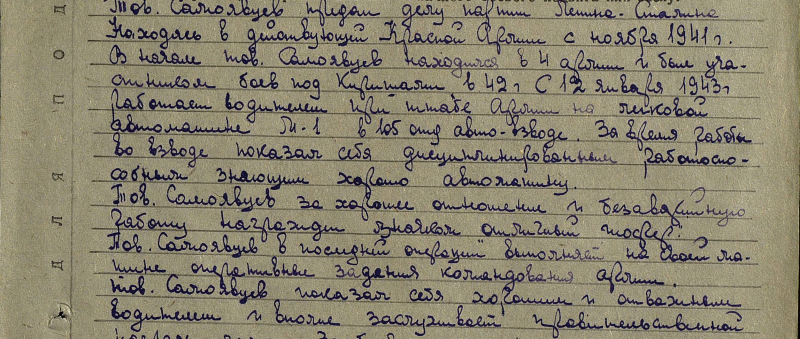 Тов. Самоявцев предан делу партии Ленина-Сталина
Находясь в действующей Красной Армии с ноября 1941 г.
В начале тов. Самоявцев находился в 4 армии и был уча-
стником боев под Киришами в 42 г. С 12 января 1943 г
работает водителем при штабе Армии на легковой
автомашине М-1 в 105 отд авто-взводе. За время работы
во взводе показал себя дисциплинированным работоспо-
собным знающим хорошо автомашину.
Тов. Самоявцев за хорошее отношение и безаварийную
работу награжден значком отличный шофер".
Тов. Самоявцев в последней операции выполнял на своей ма-
шине оперативные задания командования армии.
тов. Самоявцев показал себя хорошим и отважным
водителем и вполне заслуживает правительственной
Д Л Я П О Д